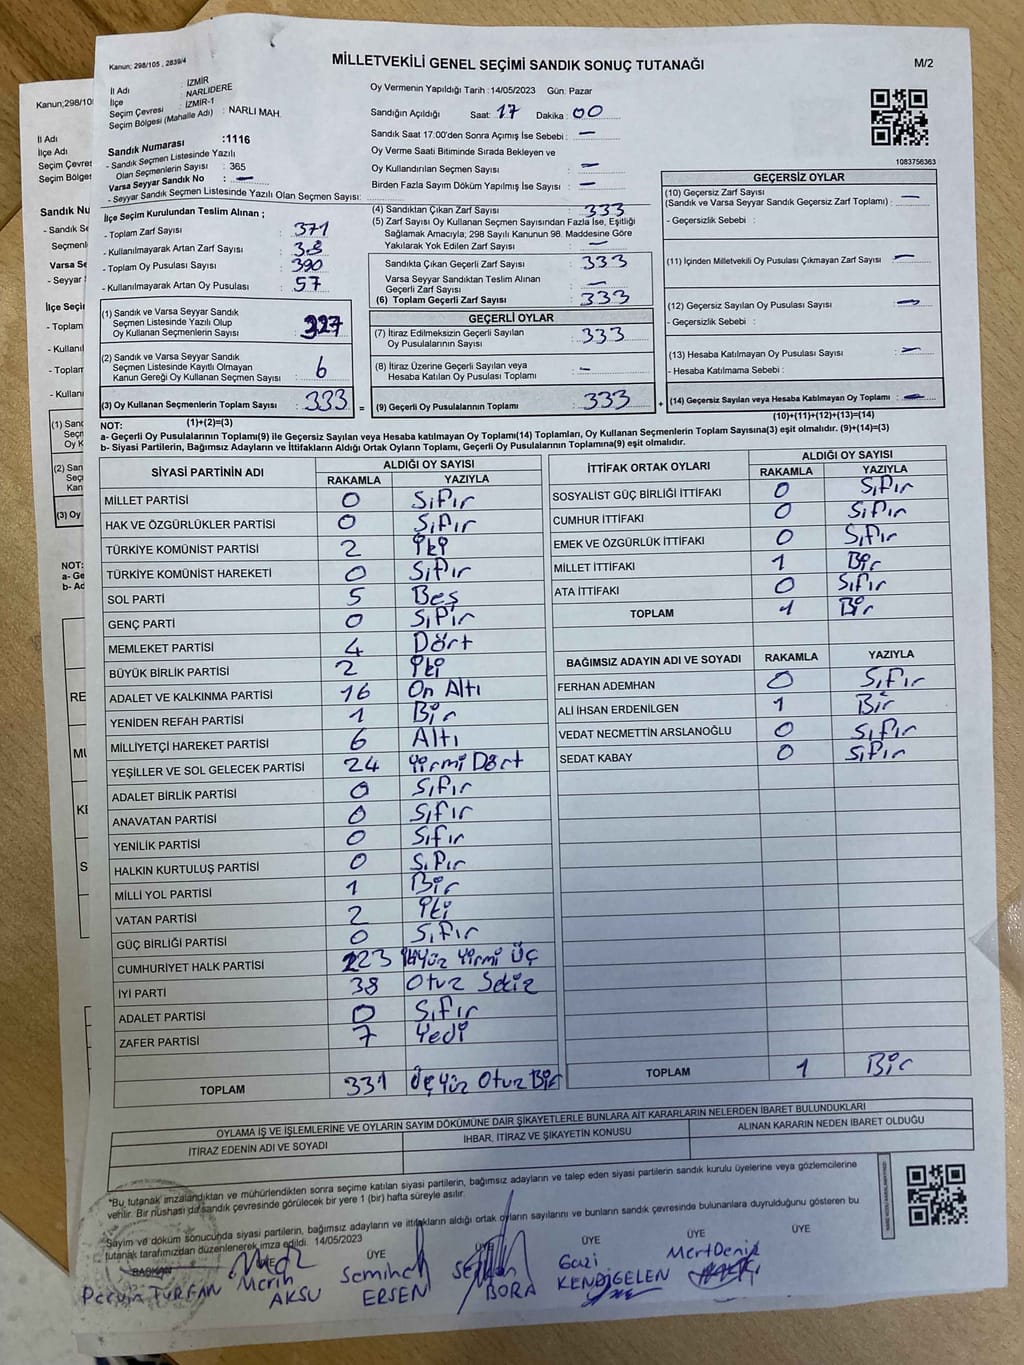 Kanun; 298/105 , 2839/4
MİLLETVEKİLİ GENEL SEÇİMİ SANDIK SONUÇ TUTANAĞI
M/2
İl Adı : İZMİR
İlçe : NARLIDERE
Seçim Çevresi : İZMİR-1
Seçim Bölgesi (Mahalle Adı) : NARLI MAH.
Sandık Numarası :1116
- Sandık Seçmen Listesinde Yazılı
Olan Seçmenlerin Sayısı : 365
Varsa Seyyar Sandık No : —
- Seyyar Sandık Seçmen Listesinde Yazılı Olan Seçmen Sayısı:
Oy Vermenin Yapıldığı Tarih : 14/05/2023 Gün: Pazar
Sandığın Açıldığı Saat: 17 Dakika: 00
Sandık Saat 17:00'den Sonra Açımış İse Sebebi : —
Oy Verme Saati Bitiminde Sırada Bekleyen ve
Oy Kullandırılan Seçmen Sayısı : —
Birden Fazla Sayım Döküm Yapılmış İse Sayısı : —
1083756363
İlçe Seçim Kurulundan Teslim Alınan ;
- Toplam Zarf Sayısı : 371
- Kullanılmayarak Artan Zarf Sayısı : 38
- Toplam Oy Pusulası Sayısı : 390
- Kullanılmayarak Artan Oy Pusulası : 57
(1) Sandık ve Varsa Seyyar Sandık
Seçmen Listesinde Yazılı Olup
Oy Kullanan Seçmenlerin Sayısı : 327
(2) Sandık ve Varsa Seyyar Sandık
Seçmen Listesinde Kayıtlı Olmayan
Kanun Gereği Oy Kullanan Seçmen Sayısı : 6
(3) Oy Kullanan Seçmenlerin Toplam Sayısı : 333 =
(1)+(2)=(3)
(4) Sandıktan Çıkan Zarf Sayısı : 333
(5) Zarf Sayısı Oy Kullanan Seçmen Sayısından Fazla İse, Eşitliği
Sağlamak Amacıyla; 298 Sayılı Kanunun 98. Maddesine Göre
Yakılarak Yok Edilen Zarf Sayısı : —
Sandıkta Çıkan Geçerli Zarf Sayısı : 333
Varsa Seyyar Sandıktan Teslim Alınan
Geçerli Zarf Sayısı : —
(6) Toplam Geçerli Zarf Sayısı : 333
GEÇERLİ OYLAR
(7) İtiraz Edilmeksizin Geçerli Sayılan
Oy Pusulalarının Sayısı : 333
(8) İtiraz Üzerine Geçerli Sayılan veya
Hesaba Katılan Oy Pusulası Toplamı : —
(9) Geçerli Oy Pusulalarının Toplamı : 333 +
GEÇERSİZ OYLAR
(10) Geçersiz Zarf Sayısı
(Sandık ve Varsa Seyyar Sandık Geçersiz Zarf Toplamı) : —
- Geçersizlik Sebebi :
(11) İçinden Milletvekili Oy Pusulası Çıkmayan Zarf Sayısı : —
(12) Geçersiz Sayılan Oy Pusulası Sayısı : —
- Geçersizlik Sebebi :
(13) Hesaba Katılmayan Oy Pusulası Sayısı : —
- Hesaba Katılmama Sebebi :
(14) Geçersiz Sayılan veya Hesaba Katılmayan Oy Toplamı : —
(10)+(11)+(12)+(13)=(14)
NOT:
a- Geçerli Oy Pusulalarının Toplamı(9) ile Geçersiz Sayılan veya Hesaba katılmayan Oy Toplamı(14) Toplamları, Oy Kullanan Seçmenlerin Toplam Sayısına(3) eşit olmalıdır. (9)+(14)=(3)
b- Siyasi Partilerin, Bağımsız Adayların ve İttifakların Aldığı Ortak Oyların Toplamı, Geçerli Oy Pusulalarının Toplamına(9) eşit olmalıdır.
SİYASİ PARTİNİN ADI ALDIĞI OY SAYISI
RAKAMLA YAZIYLA
MİLLET PARTİSİ 0 Sıfır
HAK VE ÖZGÜRLÜKLER PARTİSİ 0 Sıfır
TÜRKİYE KOMÜNİST PARTİSİ 2 İki
TÜRKİYE KOMÜNİST HAREKETİ 0 Sıfır
SOL PARTİ 5 Beş
GENÇ PARTİ 0 Sıfır
MEMLEKET PARTİSİ 4 Dört
BÜYÜK BİRLİK PARTİSİ 2 İki
ADALET VE KALKINMA PARTİSİ 16 On Altı
YENİDEN REFAH PARTİSİ 1 Bir
MİLLİYETÇİ HAREKET PARTİSİ 6 Altı
YEŞİLLER VE SOL GELECEK PARTİSİ 24 Yirmi Dört
ADALET BİRLİK PARTİSİ 0 Sıfır
ANAVATAN PARTİSİ 0 Sıfır
YENİLİK PARTİSİ 0 Sıfır
HALKIN KURTULUŞ PARTİSİ 0 Sıfır
MİLLİ YOL PARTİSİ 1 Bir
VATAN PARTİSİ 2 İki
GÜÇ BİRLİĞİ PARTİSİ 0 Sıfır
CUMHURİYET HALK PARTİSİ 223 İkiyüz Yirmi Üç
İYİ PARTİ 38 Otuz Sekiz
ADALET PARTİSİ 0 Sıfır
ZAFER PARTİSİ 7 Yedi
TOPLAM 331 Üçyüz Otuz Bir
İTTİFAK ORTAK OYLARI ALDIĞI OY SAYISI
RAKAMLA YAZIYLA
SOSYALİST GÜÇ BİRLİĞİ İTTİFAKI 0 Sıfır
CUMHUR İTTİFAKI 0 Sıfır
EMEK VE ÖZGÜRLÜK İTTİFAKI 0 Sıfır
MİLLET İTTİFAKI 1 Bir
ATA İTTİFAKI 0 Sıfır
TOPLAM 1 Bir
BAĞIMSIZ ADAYIN ADI VE SOYADI RAKAMLA YAZIYLA
FERHAN ADEMHAN 0 Sıfır
ALİ İHSAN ERDENİLGEN 1 Bir
VEDAT NECMETTİN ARSLANOĞLU 0 Sıfır
SEDAT KABAY 0 Sıfır
TOPLAM 1 Bir
OYLAMA İŞ VE İŞLEMLERİNE VE OYLARIN SAYIM DÖKÜMÜNE DAİR ŞİKAYETLERLE BUNLARA AİT KARARLARIN NELERDEN İBARET BULUNDUKLARI
İTİRAZ EDENİN ADI VE SOYADI İHBAR, İTİRAZ VE ŞİKAYETİN KONUSU ALINAN KARARIN NEDEN İBARET OLDUĞU
*Bu tutanak imzalandıktan ve mühürlendikten sonra seçime katılan siyasi partilerin, bağımsız adayların ve talep eden siyasi partilerin sandık kurulu üyelerine veya gözlemcilerine
verilir. Bir nüshası da sandık çevresinde görülecek bir yere 1 (bir) hafta süreyle asılır.
Sayım ve döküm sonucunda siyasi partilerin, bağımsız adayların ve ittifakların aldığı ortak oyların sayılarını ve bunların sandık çevresinde bulunanlara duyrulduğunu gösteren bu
tutanak tarafımızdan düzenlenerek imza edildi. 14/05/2023
BAŞKAN ÜYE ÜYE ÜYE ÜYE ÜYE ÜYE
TURFAN
Merih AKSU
Semihel ERSEN
BORA
Gazi KENDİGELEN
MertDeniz